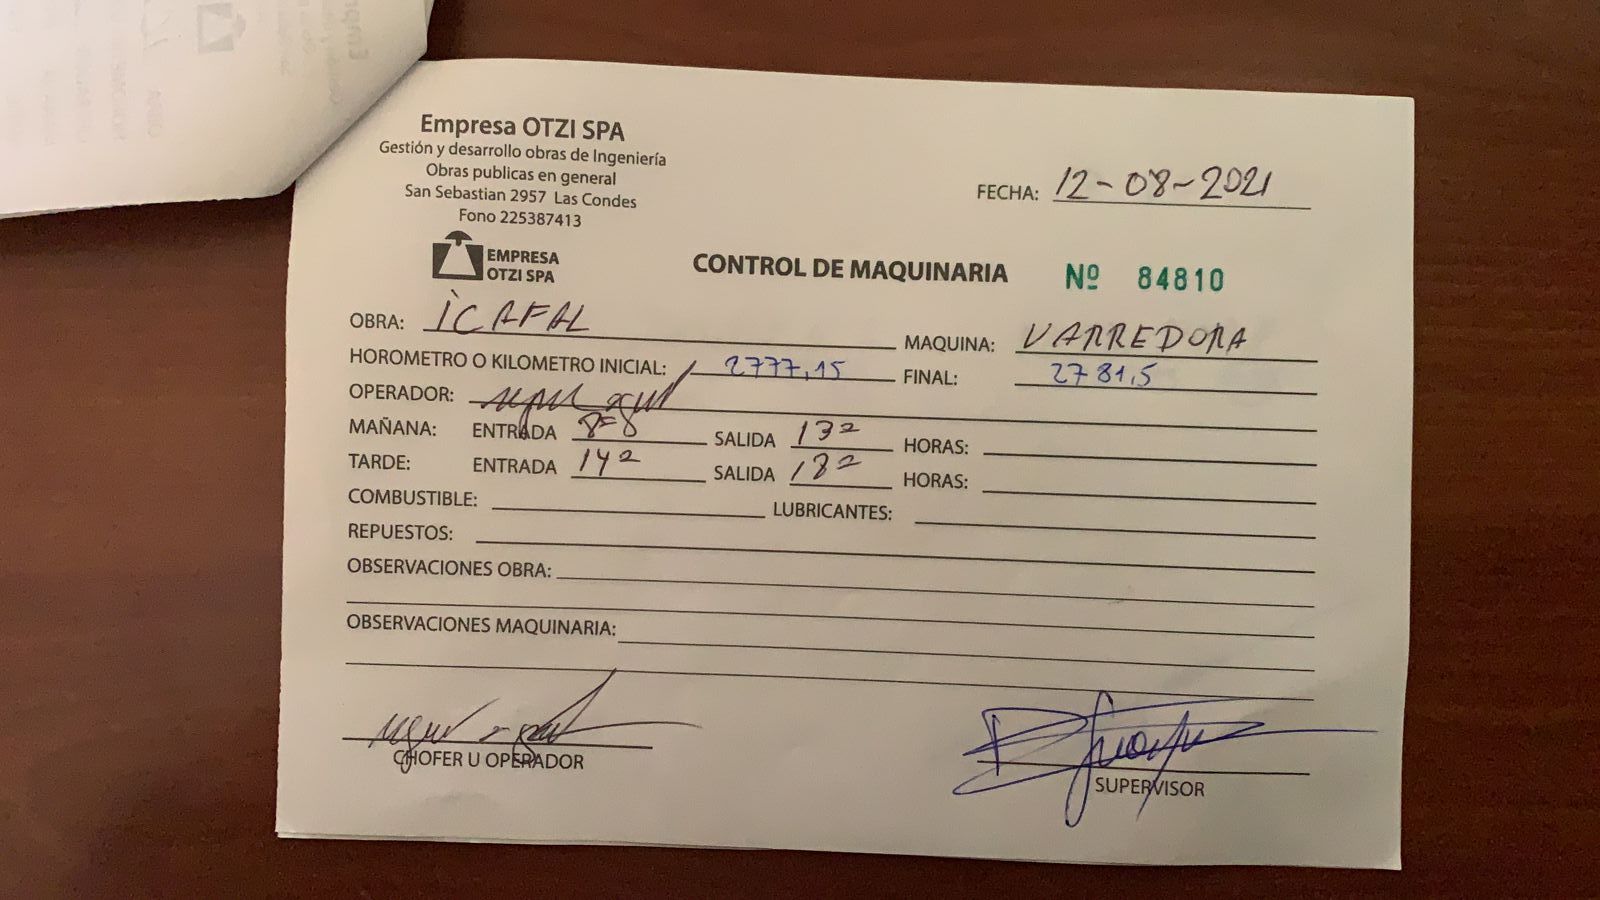 Empresa OTZI SPA
Gestión y desarrollo obras de Ingeniería
Obras publicas en general
San Sebastian 2957 Las Condes
Fono 225387413
FECHA: 12-08-2021
EMPRESA
OTZI SPA
CONTROL DE MAQUINARIA Nº 84810
OBRA: ICAFAL
MAQUINA: VARREDORA
HOROMETRO O KILOMETRO INICIAL: 2777,15 FINAL: 2781,5
OPERADOR:
MAÑANA: ENTRADA 8=8 SALIDA 13º HORAS:
TARDE: ENTRADA 14º SALIDA 18º HORAS:
COMBUSTIBLE: LUBRICANTES:
REPUESTOS:
OBSERVACIONES OBRA:
OBSERVACIONES MAQUINARIA:
CHOFER U OPERADOR
SUPERVISOR